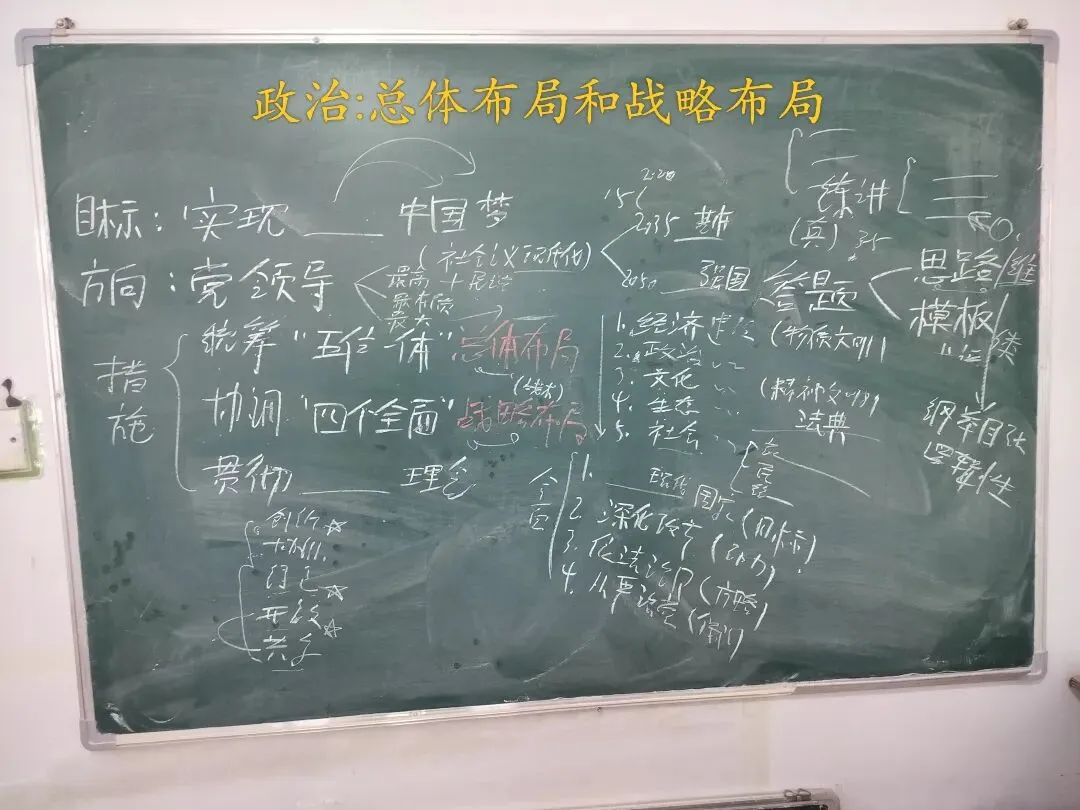 政治:总体布局和战略布局
目标：实现____中国梦
方向：党领导
(社会主义现代化)
最高
最本质
最大
2:20
15
2035 基本
2050 强国
措施
统筹“五位一体”总体布局
协调“四个全面”战略布局
贯彻____理念
创新☆
开放☆
共享
1. 经济建设 (物质文明)
2. 政治
3. 文化 (精神文明)
4. 生态
5. 社会
法典
全面
1. ____现代国家(目标)
2. 深化改革(动力)
3. 依法治国(方略)
4. 从严治党(保障)
练讲
(真) 35
答题
思路
维
模板
纲举目张
逻辑性